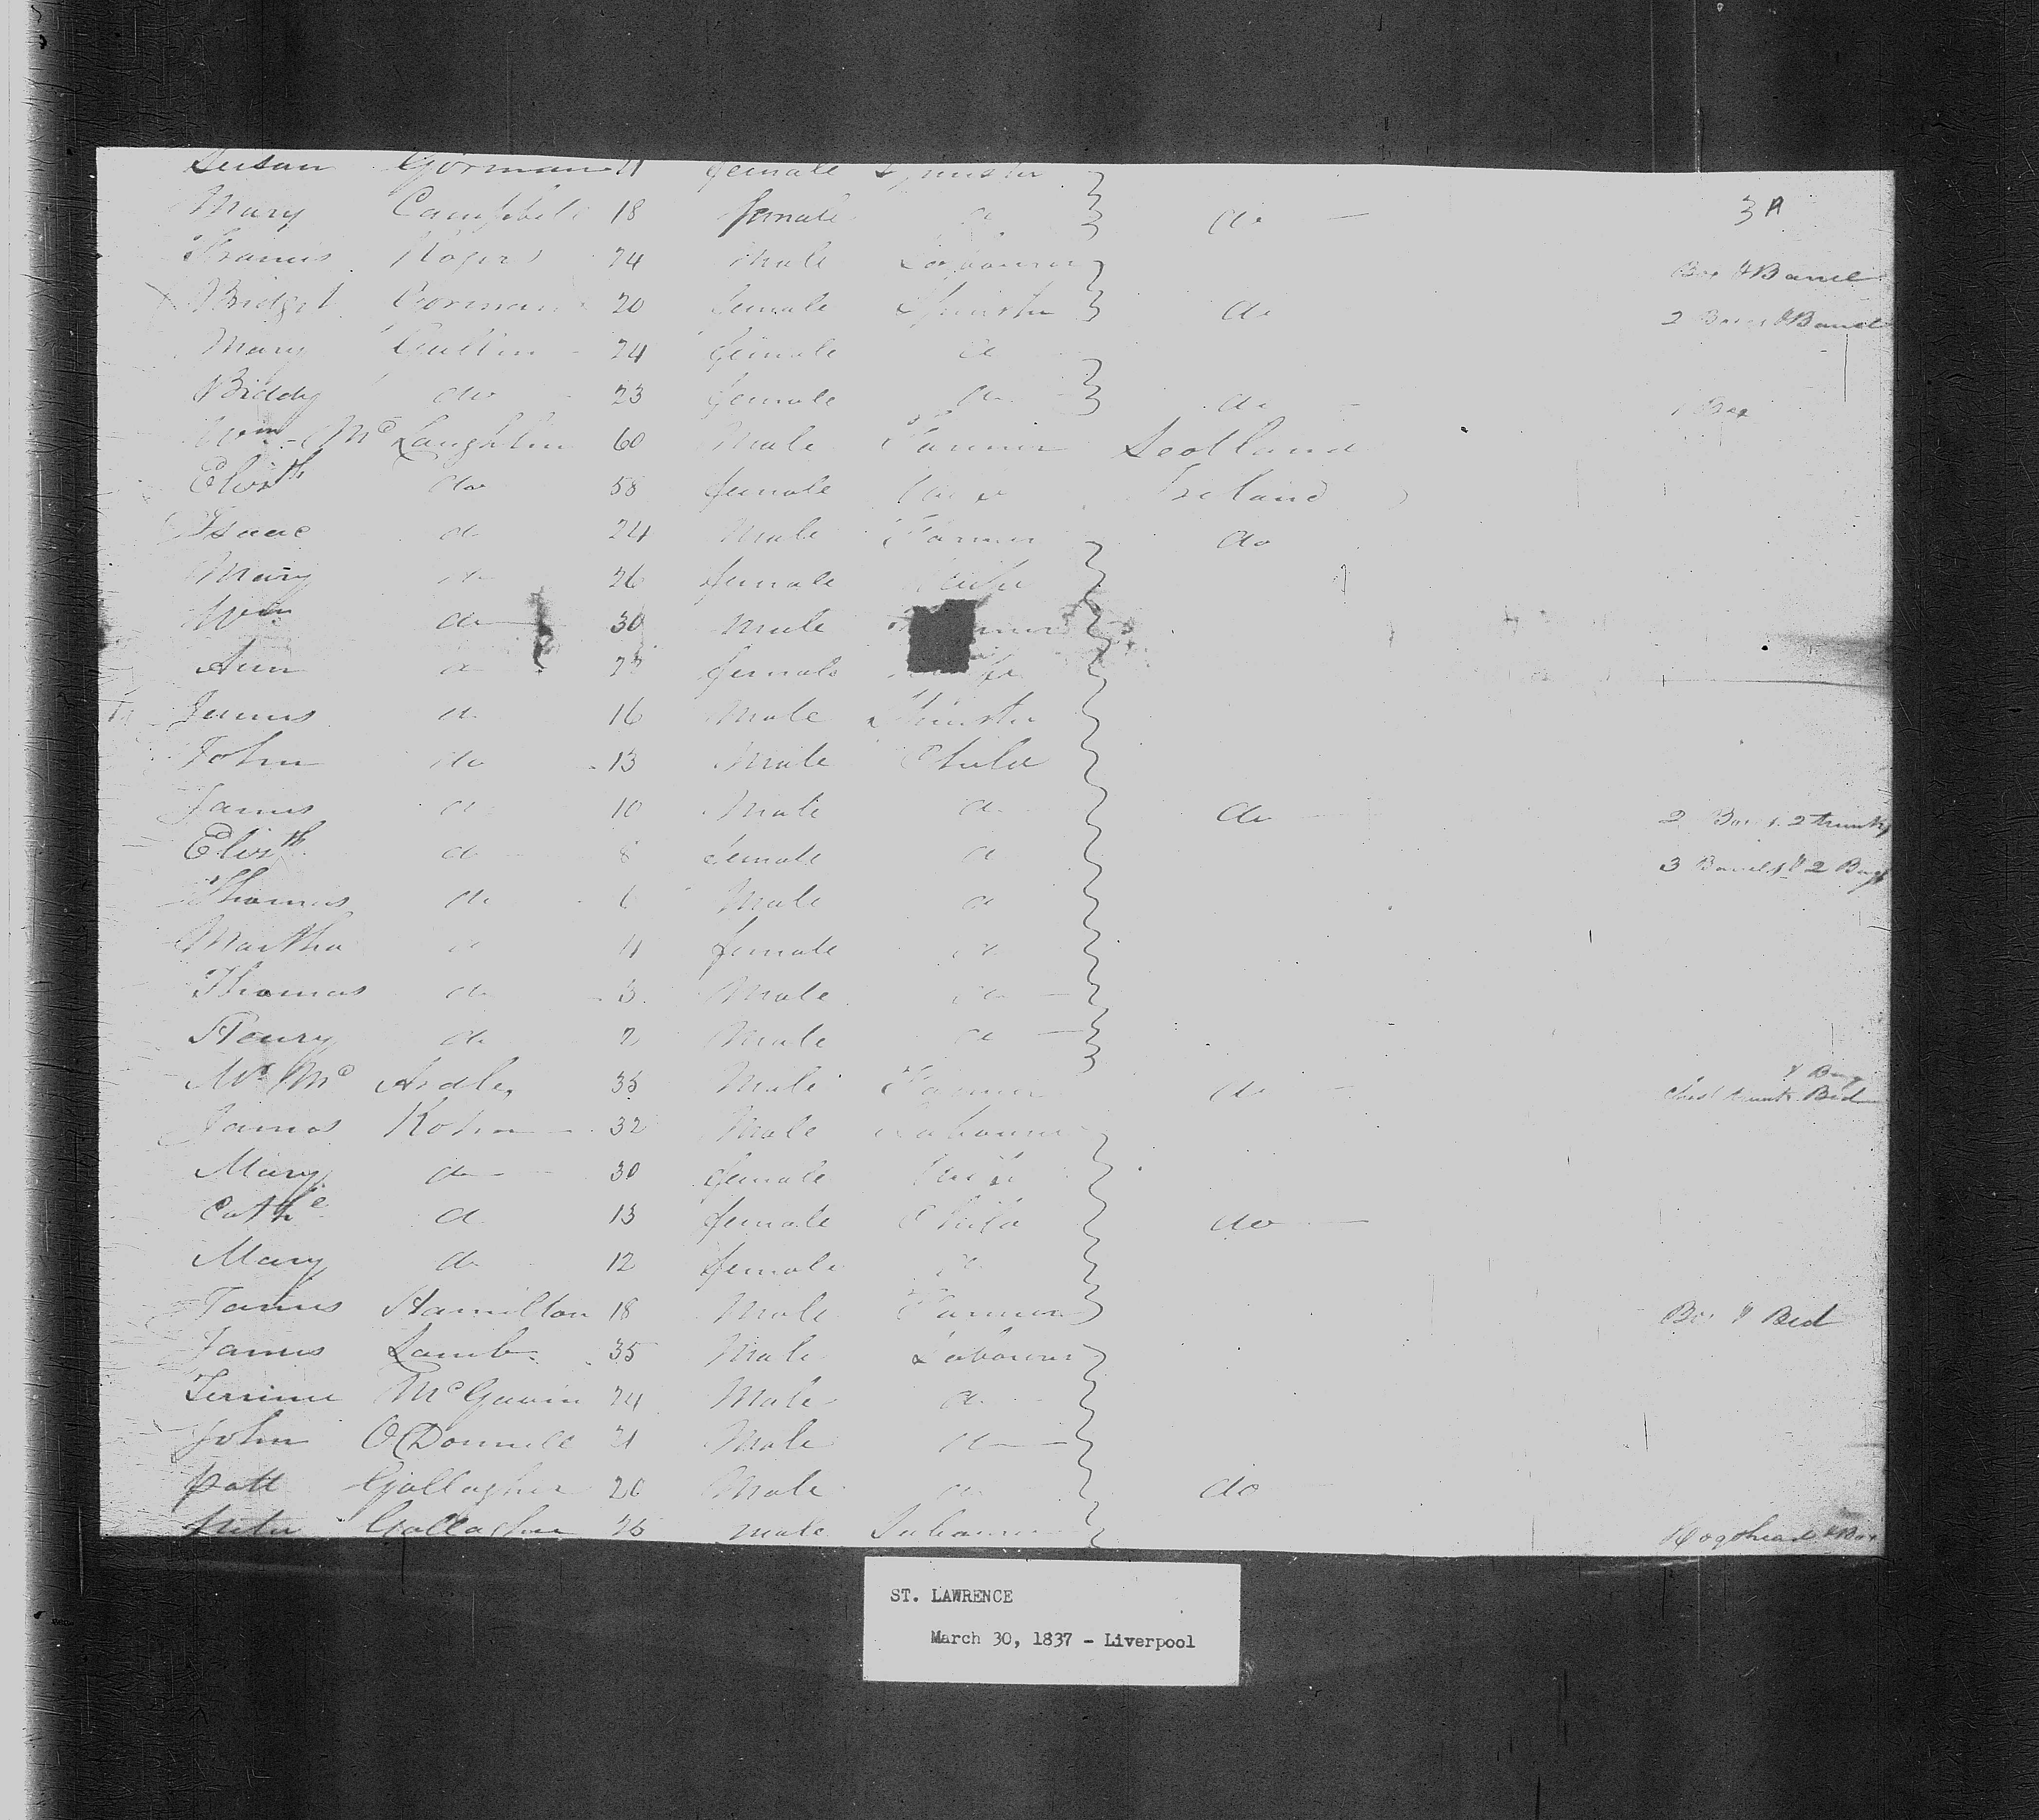 Susan Gorman 11 female Spinster
Mary Campbell 18 female do do 3 A
Francis Rogers 24 Male Labourer Box & Barrel
Bridget Gorman 20 female Spinster do 2 Boxes & Barrel
Mary 24 female do
Biddy do 23 female do do 1 Box
Wm. McLaughlin 60 Male Farmer Scotland
Elizth do 58 female Wife Ireland
Isaac do 24 Male Farmer do
Mary do 26 female Wife
Wm. do 30 Male
Ann do female
James do 16 Male Spinster
John do 13 Male Child
James do 10 Male do do 2 Box & 2 trunks
Elizth do 8 female do 3 Barrels & 2 Bags
Thomas do 6 Male do
Martha do 4 female do
Thomas do 3 Male do
Henry do 2 Male do
Mr. Mc Ardle 35 Male Farmer do & Bag
Chest trunk Bed
James 32 Male Labourer
Mary do 30 female Wife
Cathe do 13 female Child do
Mary do 12 female do
James Hamilton 18 Male Farmer Box & Bed
James Lamb 35 Male Labourer
McGavin 24 Male do
John O'Donnell 21 Male do
Patt Gallagher 20 Male do do
Peter Gallagher 25 male Labourer Hogshead & Box
ST. LAWRENCE
March 30, 1837 - Liverpool